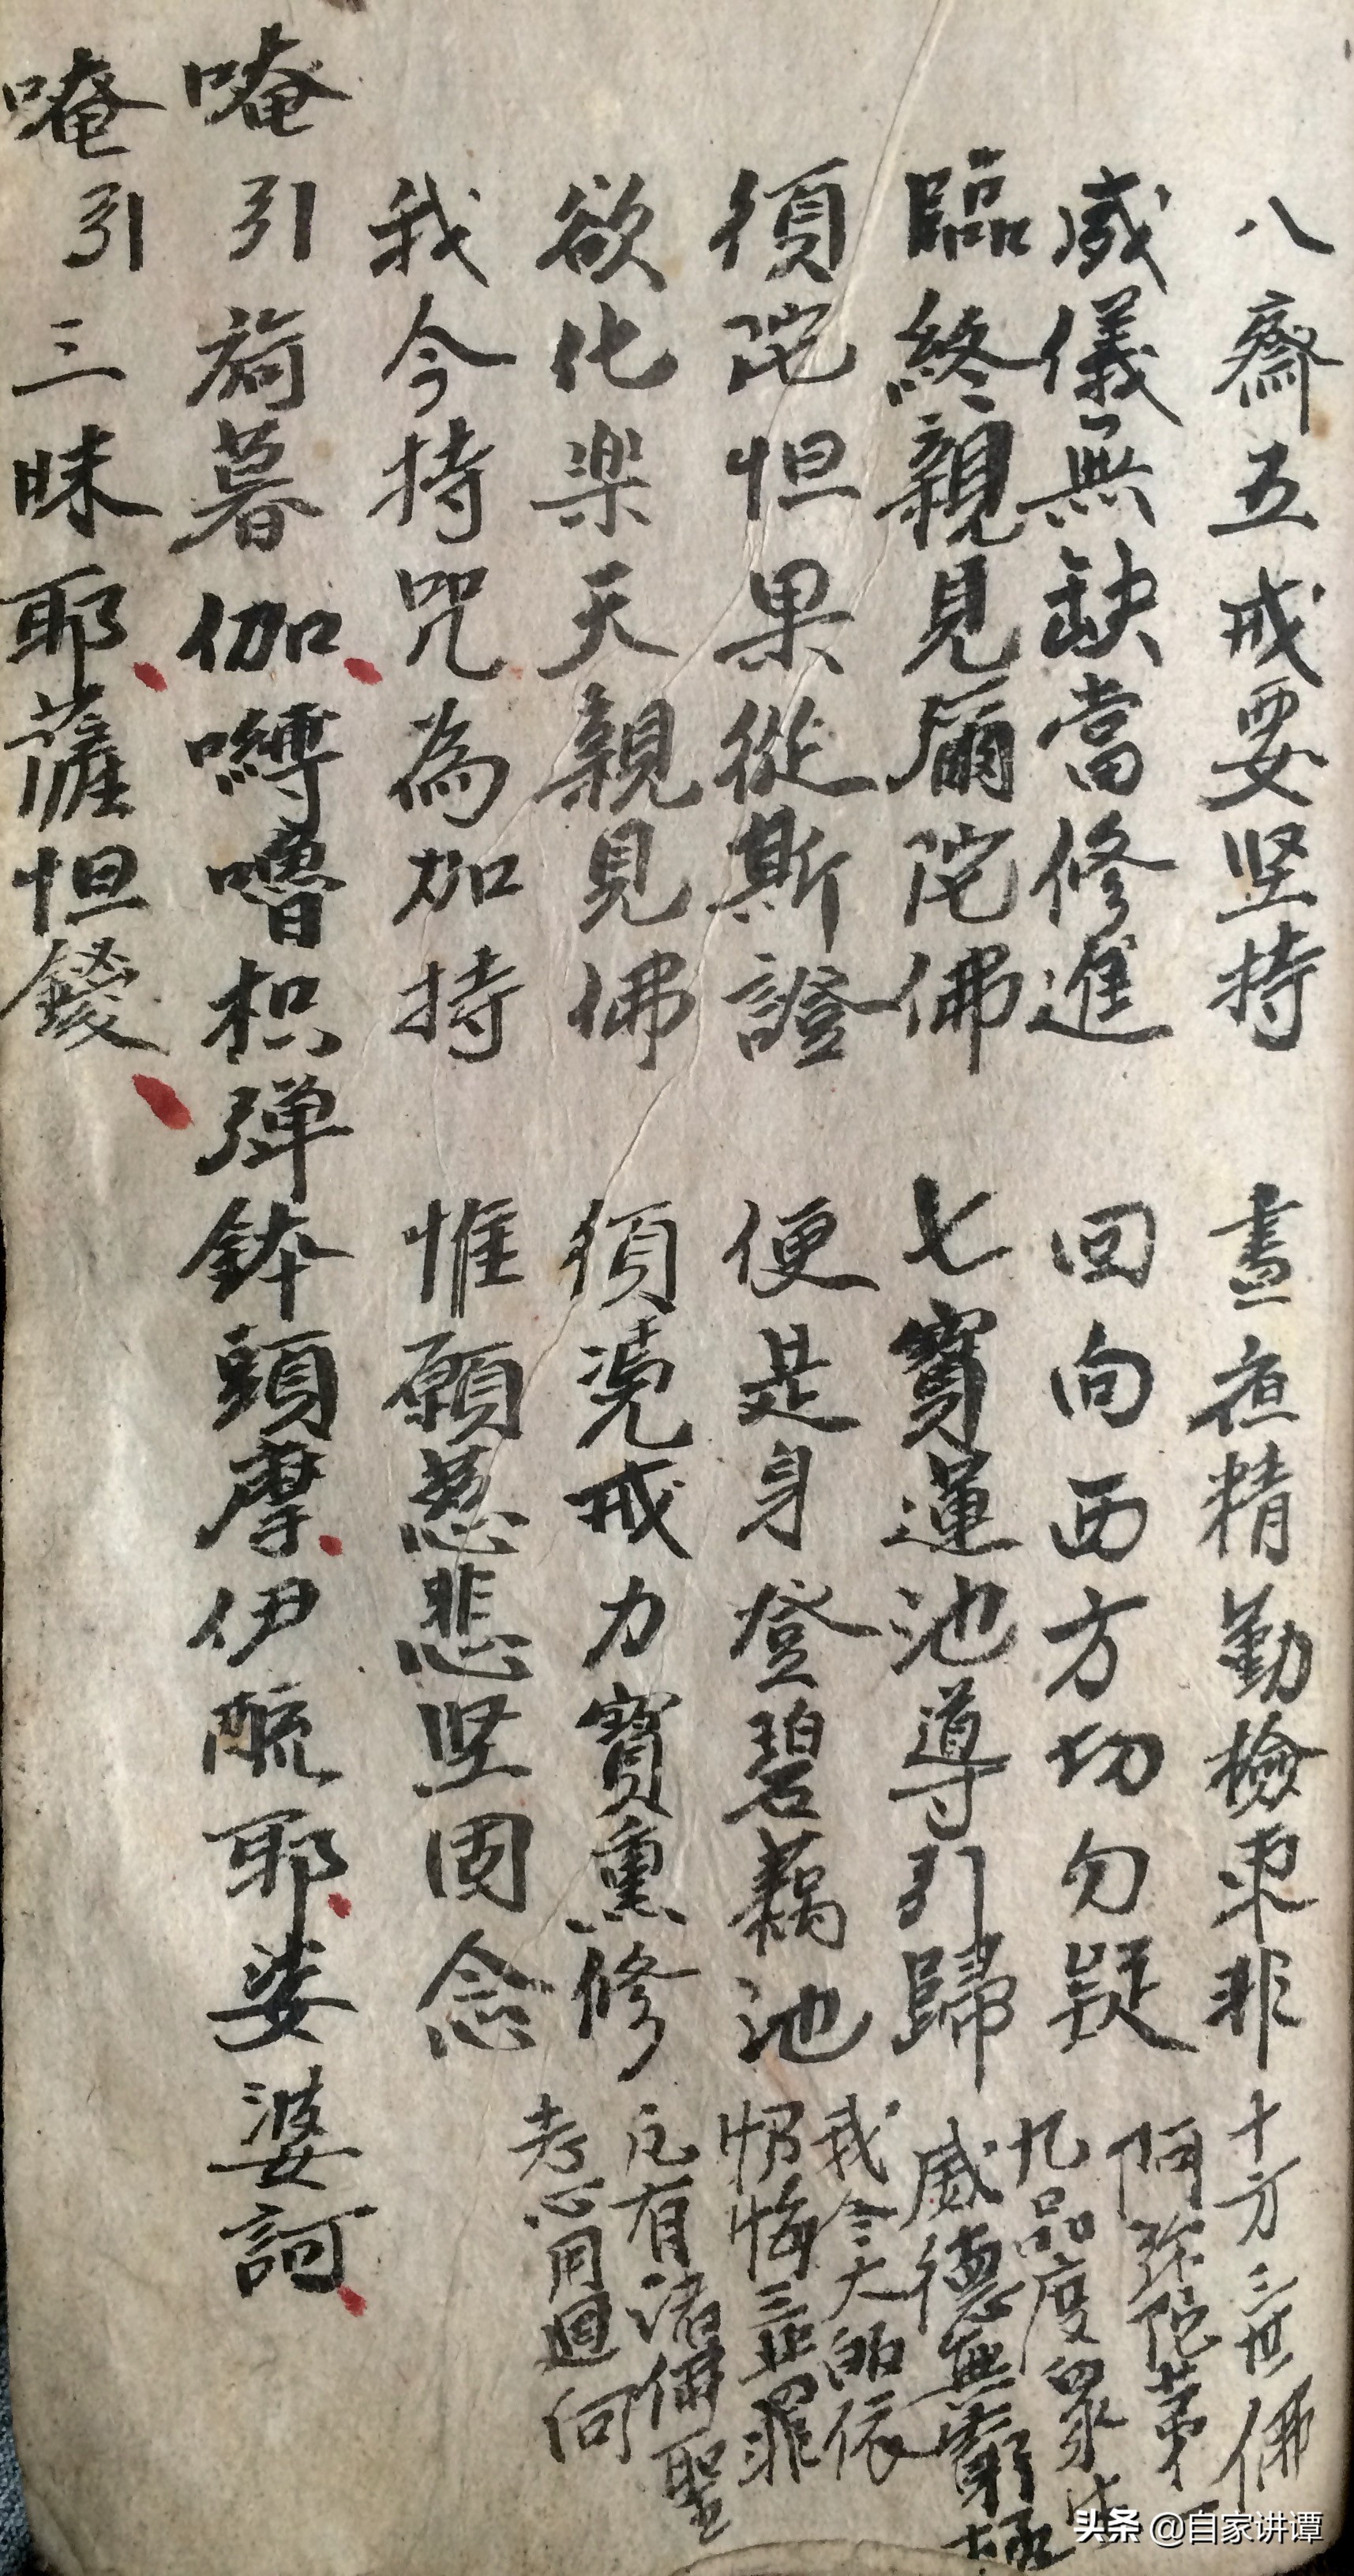 八齋五戒要坚持 晝夜精勤檢束非
威儀無缺當修進 回向西方切勿疑
臨終親見彌陀佛 七寶蓮池導引歸
須陀怛果從斯證 便是身登碧藕池
欲化楽天親見佛 須凴戒力寶熏修
我今持咒為加持 惟願慈悲坚固念
唵引 旖暮伽嚩嚕枳弹鉢頭摩伊醯耶娑婆訶
唵引三昧耶薩怛鍐
十方三世佛
阿弥陀苐一
九品度眾生
威德無窮極
我今大皈依
懺悔三业罪
凡有諸佛聖
志心用迴向
头条 @自家讲谭